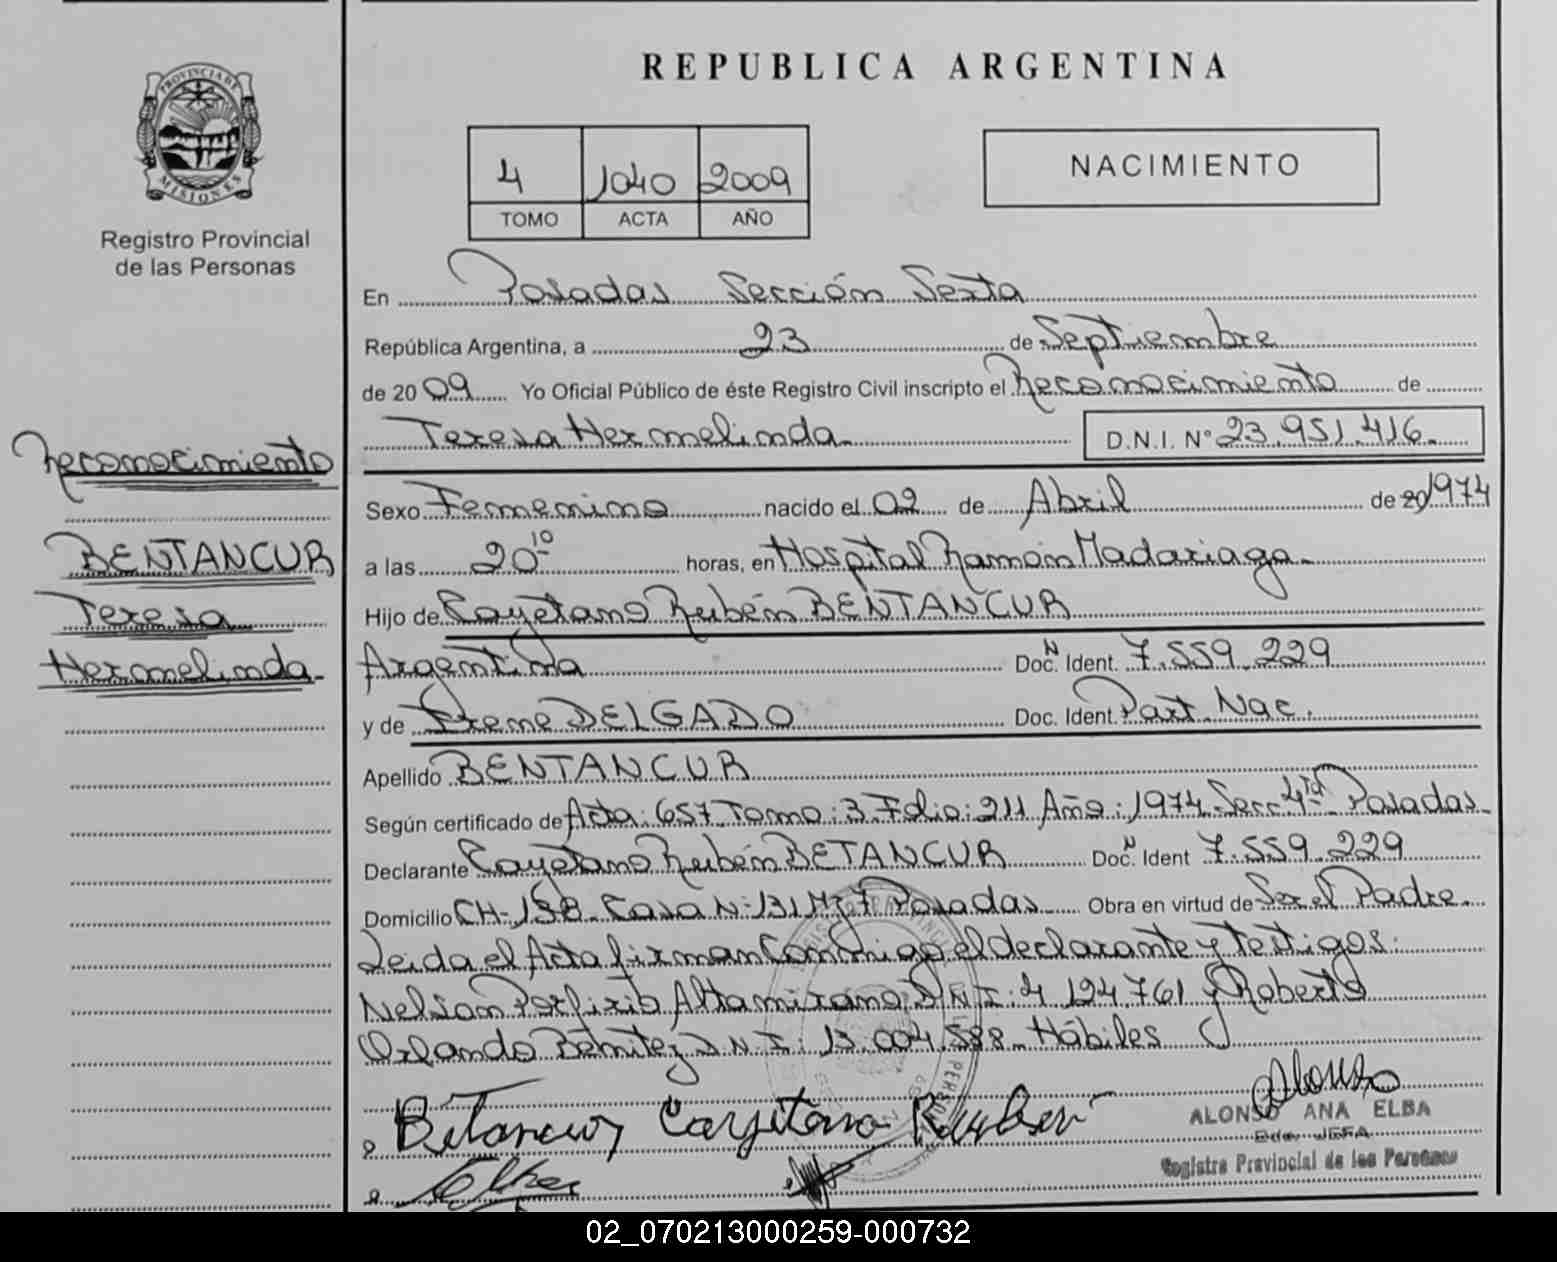 PROVINCIA DE
MISIONES
Registro Provincial
de las Personas
REPUBLICA ARGENTINA
4 1040 2009
TOMO ACTA AÑO
NACIMIENTO
En Posadas Sección Sexta
República Argentina, a 23 de Septiembre
de 20 09 Yo Oficial Público de éste Registro Civil inscripto el Reconocimiento de
Teresa Hermelinda D.N.I. N° 23.951.416
Reconocimiento
BENTANCUR
Teresa
Hermelinda
Sexo Femenino nacido el 02 de Abril de 20 1974
a las 20 10 horas, en Hospital Ramón Madariaga
Hijo de Cayetano Rubén BENTANCUR
Argentina Doc. Ident. 7.559.229
y de Irene DELGADO Doc. Ident. Part. Nac.
Apellido BENTANCUR
Según certificado de Acta: 657 Tomo: 3 Folio: 211 Año: 1974 Secc 4ta Posadas
Declarante Cayetano Rubén BETANCUR Doc. Ident 7.559.229
Domicilio CH-158 Casa N: 131 Posadas Obra en virtud de Ser el Padre
Leida el Acta firman Conmigo el declarante y Testigos:
Nelson Porfirio Altamirano D N I: 4 124 761 y Roberto
Orlando Benitez D N I: 13.004.588 Hábiles
Betancur Cayetano Ruben
Alonso
ALONSO ANA ELBA
JEFA
Registro Provincial de las Personas
02_070213000259-000732